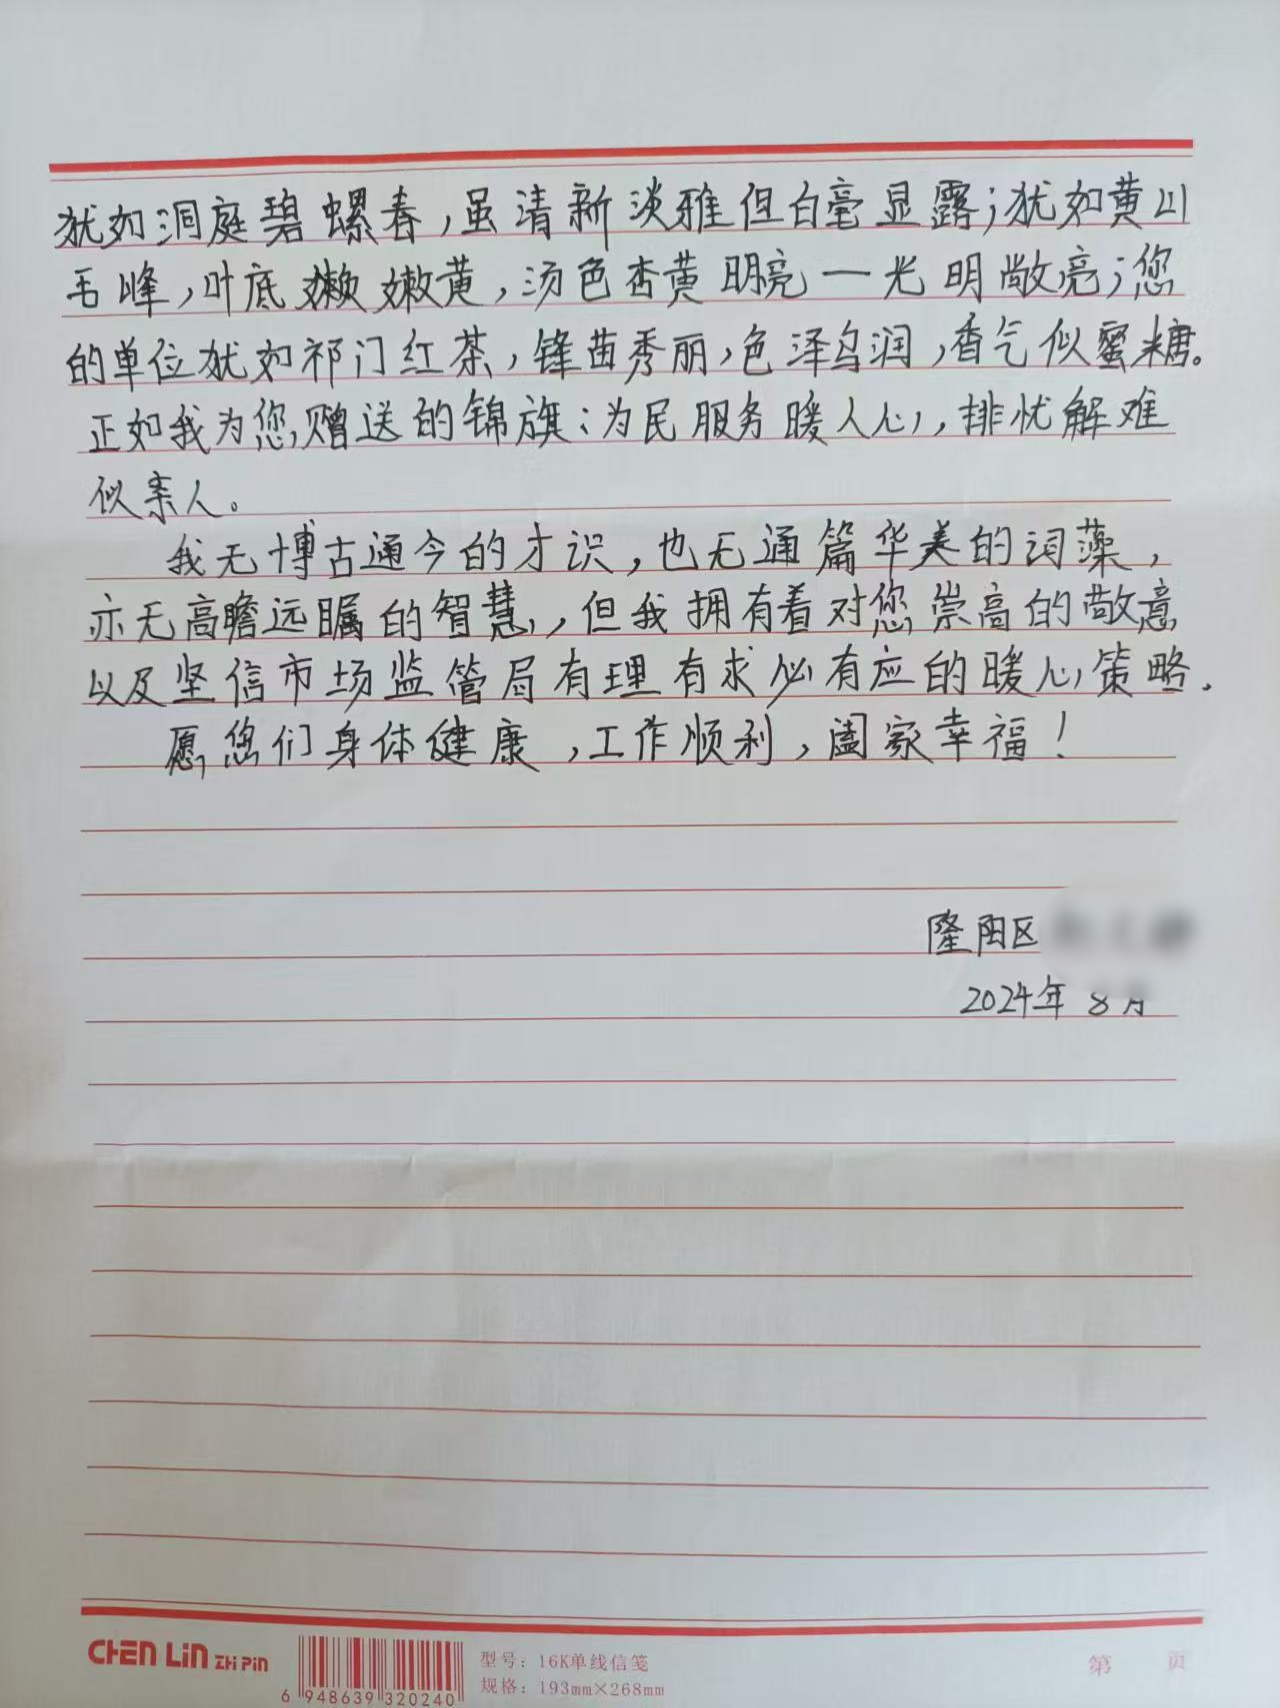 犹如洞庭碧螺春,虽清新淡雅但白毫显露;犹如黄山
毛峰,叶底嫩嫩黄,汤色杏黄明亮一光明敞亮;您
的单位犹如祁门红茶,锋苗秀丽,色泽乌润,香气似蜜糖。
正如我为您赠送的锦旗:为民服务暖人心,排忧解难
似亲人。
我无博古通今的才识,也无通篇华美的词藻,
亦无高瞻远瞩的智慧,但我拥有着对您崇高的敬意
以及坚信市场监管局有理有求必有应的暖心策略.
愿您们身体健康,工作顺利,阖家幸福!
隆阳区
2024年 8月
CHEN LIN ZHI PIN
6 948639 320240
型号:16K单线信笺
规格:193mm×268mm
第 页